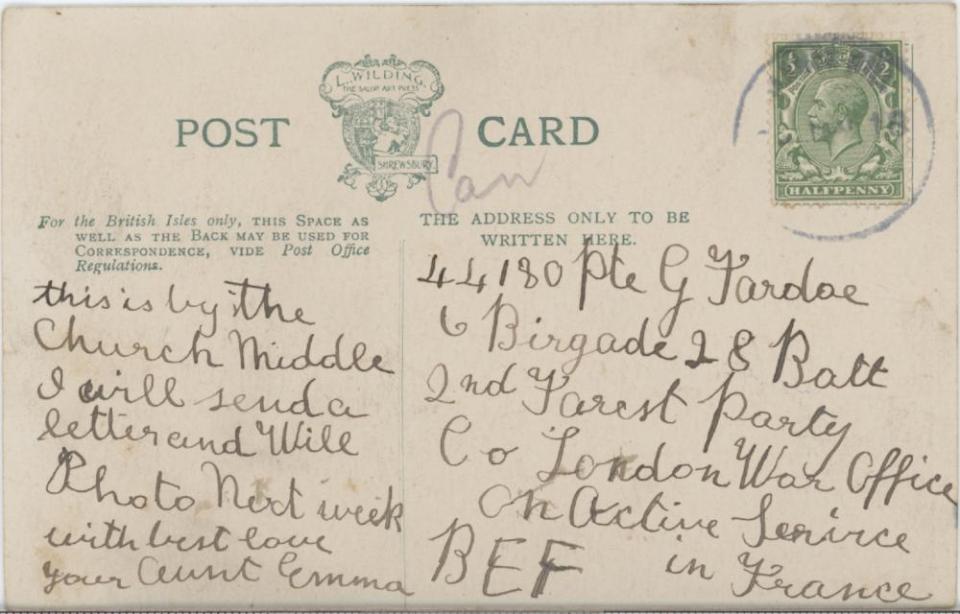 L. WILDING.
THE SALOP ART PRESS
SHREWSBURY
POST CARD
Can
HALFPENNY
For the British Isles only, THIS SPACE AS
WELL AS THE BACK MAY BE USED FOR
CORRESPONDENCE, VIDE Post Office
Regulations.
this is by the
Church Middle
I will send a
letter and Will
Photo Next week
with best love
your Aunt Emma
THE ADDRESS ONLY TO BE
WRITTEN HERE.
44180 Pte G Fardoe
6 Birgade 28 Batt
2nd Farest Party
Co London War Office
On Active Service
BEF in France